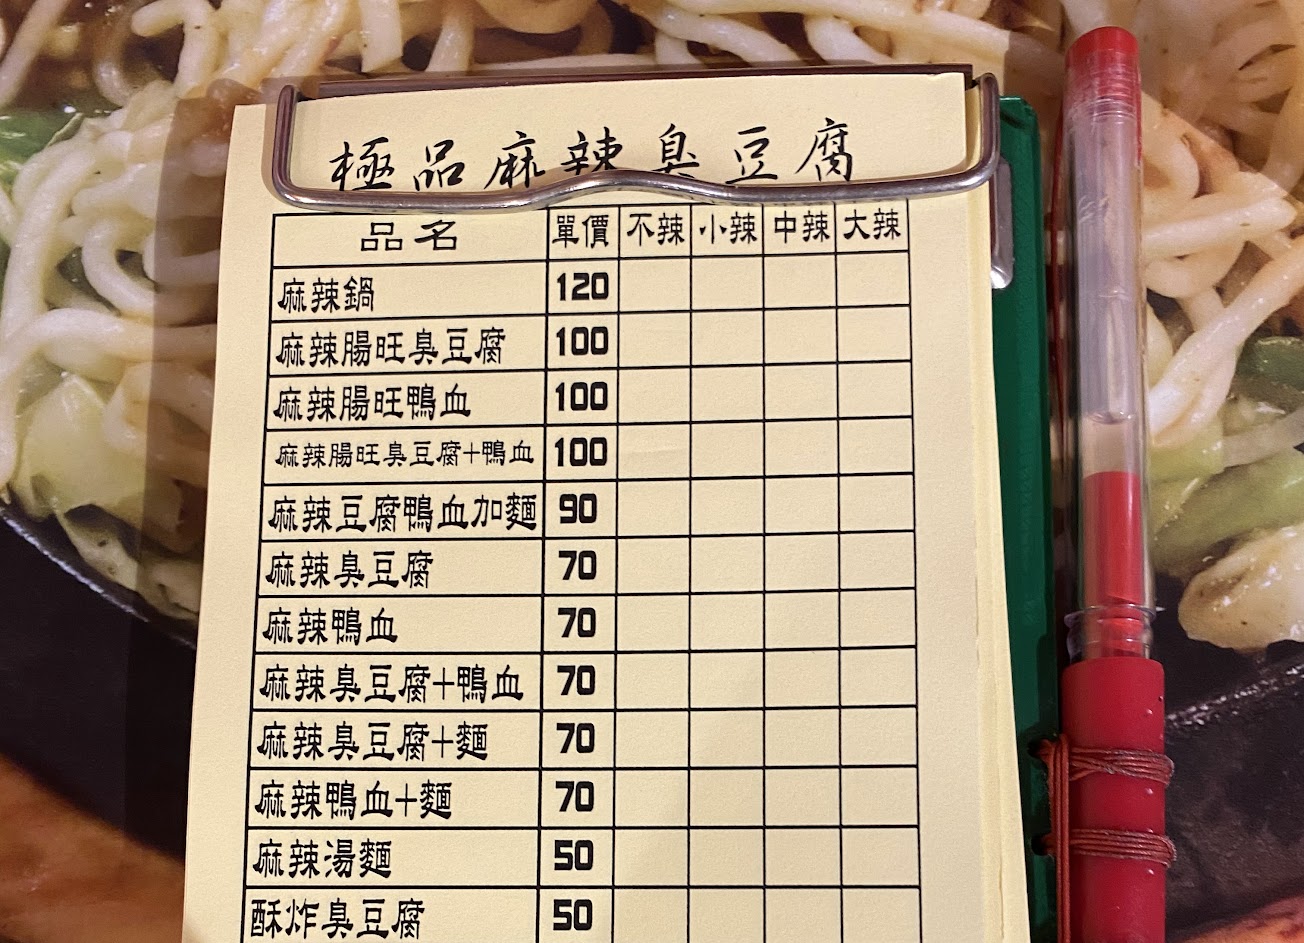 極品麻辣臭豆腐
品名 單價 不辣 小辣 中辣 大辣
麻辣鍋 120
麻辣腸旺臭豆腐 100
麻辣腸旺鴨血 100
麻辣腸旺臭豆腐+鴨血 100
麻辣豆腐鴨血加麵 90
麻辣臭豆腐 70
麻辣鴨血 70
麻辣臭豆腐+鴨血 70
麻辣臭豆腐+麵 70
麻辣鴨血+麵 70
麻辣湯麵 50
酥炸臭豆腐 50